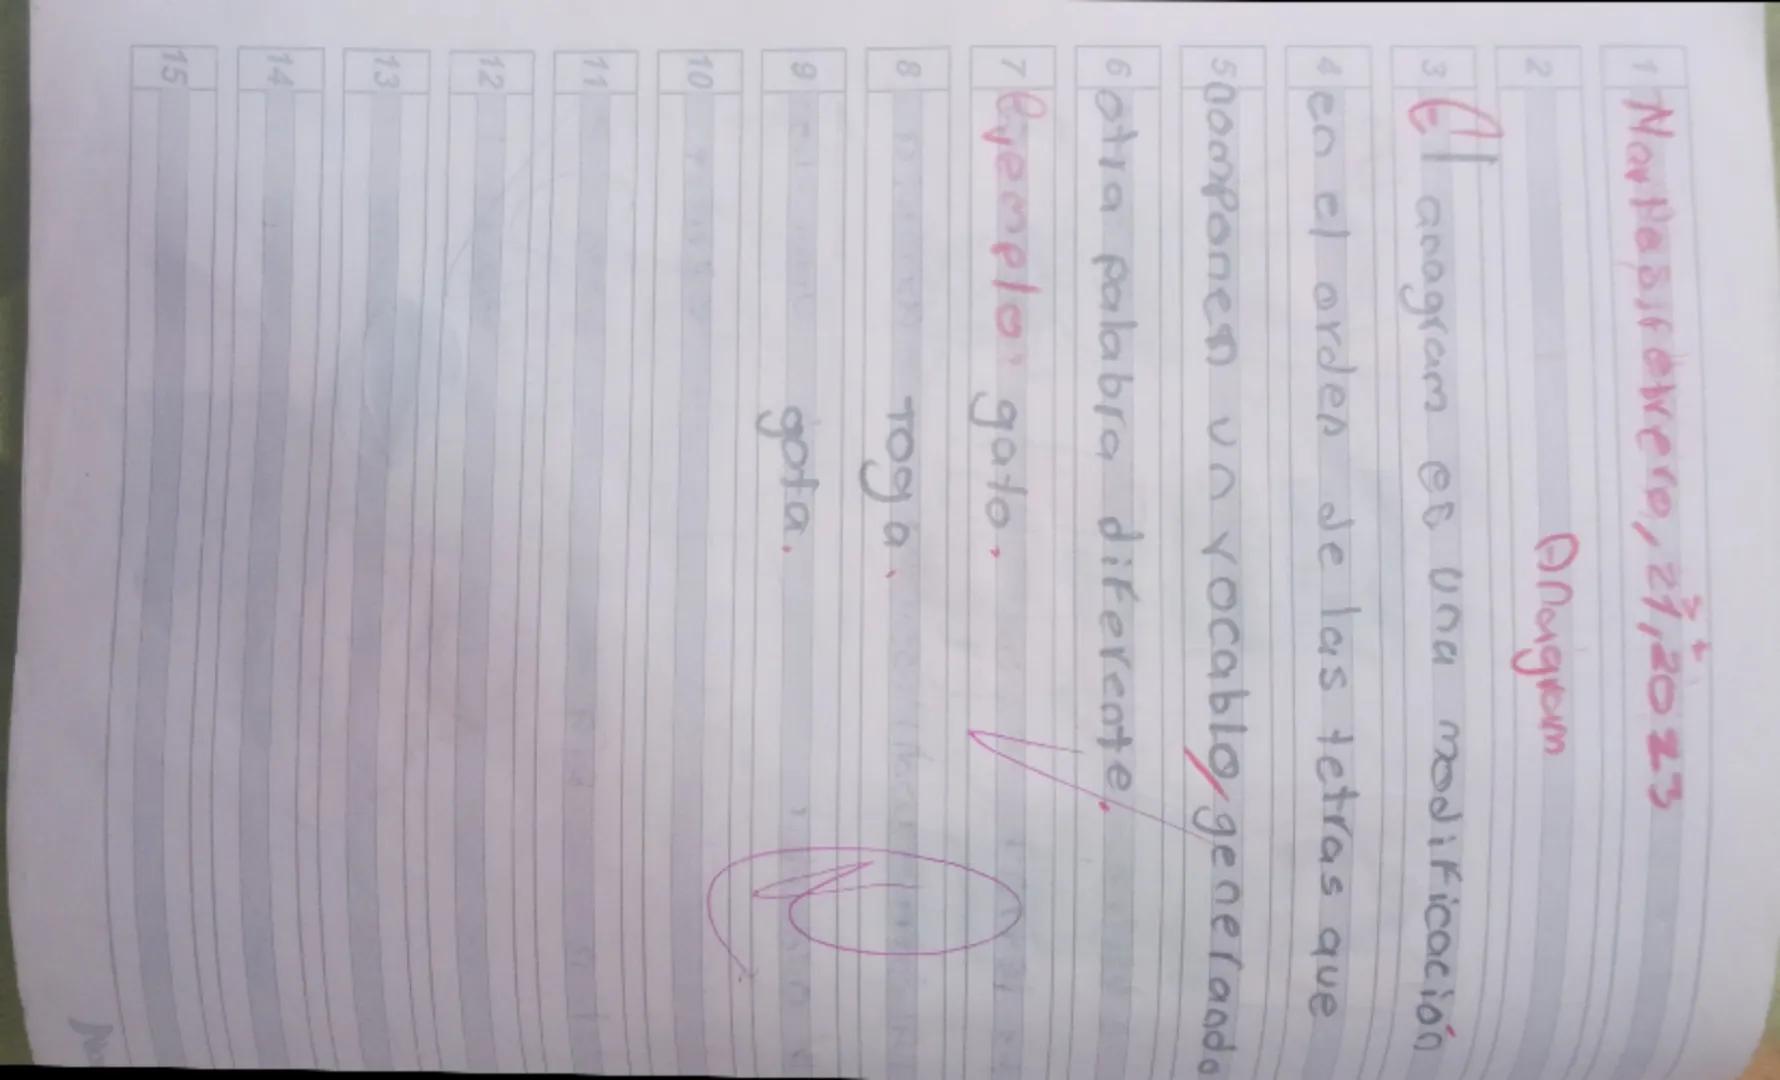 1 Martes, febrero, 21, 2023
2 Anagram
3 El anagram es una modificación
4 en el orden de las tetras que
5 componen un vocablo, generando
6 otra palabra diferente.
7 Ejemplo: gato.
8 Toga.
9 gota.
10
11
12
13
14
15